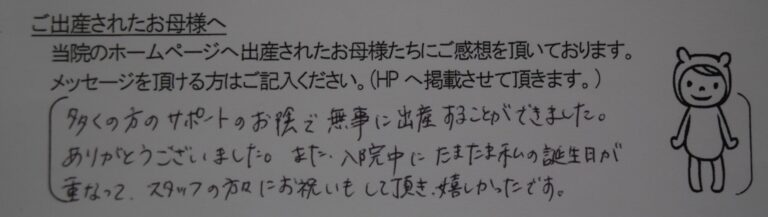 ご出産されたお母様へ
当院のホームページへ出産されたお母様たちにご感想を頂いております。
メッセージを頂ける方はご記入ください。(HP へ掲載させて頂きます。)
多くの方のサポートのお陰で無事に出産することができました。
ありがとうございました。また、入院中にたまたま私の誕生日が
重なって、スタッフの方々にお祝いもして頂き、嬉しかったです。